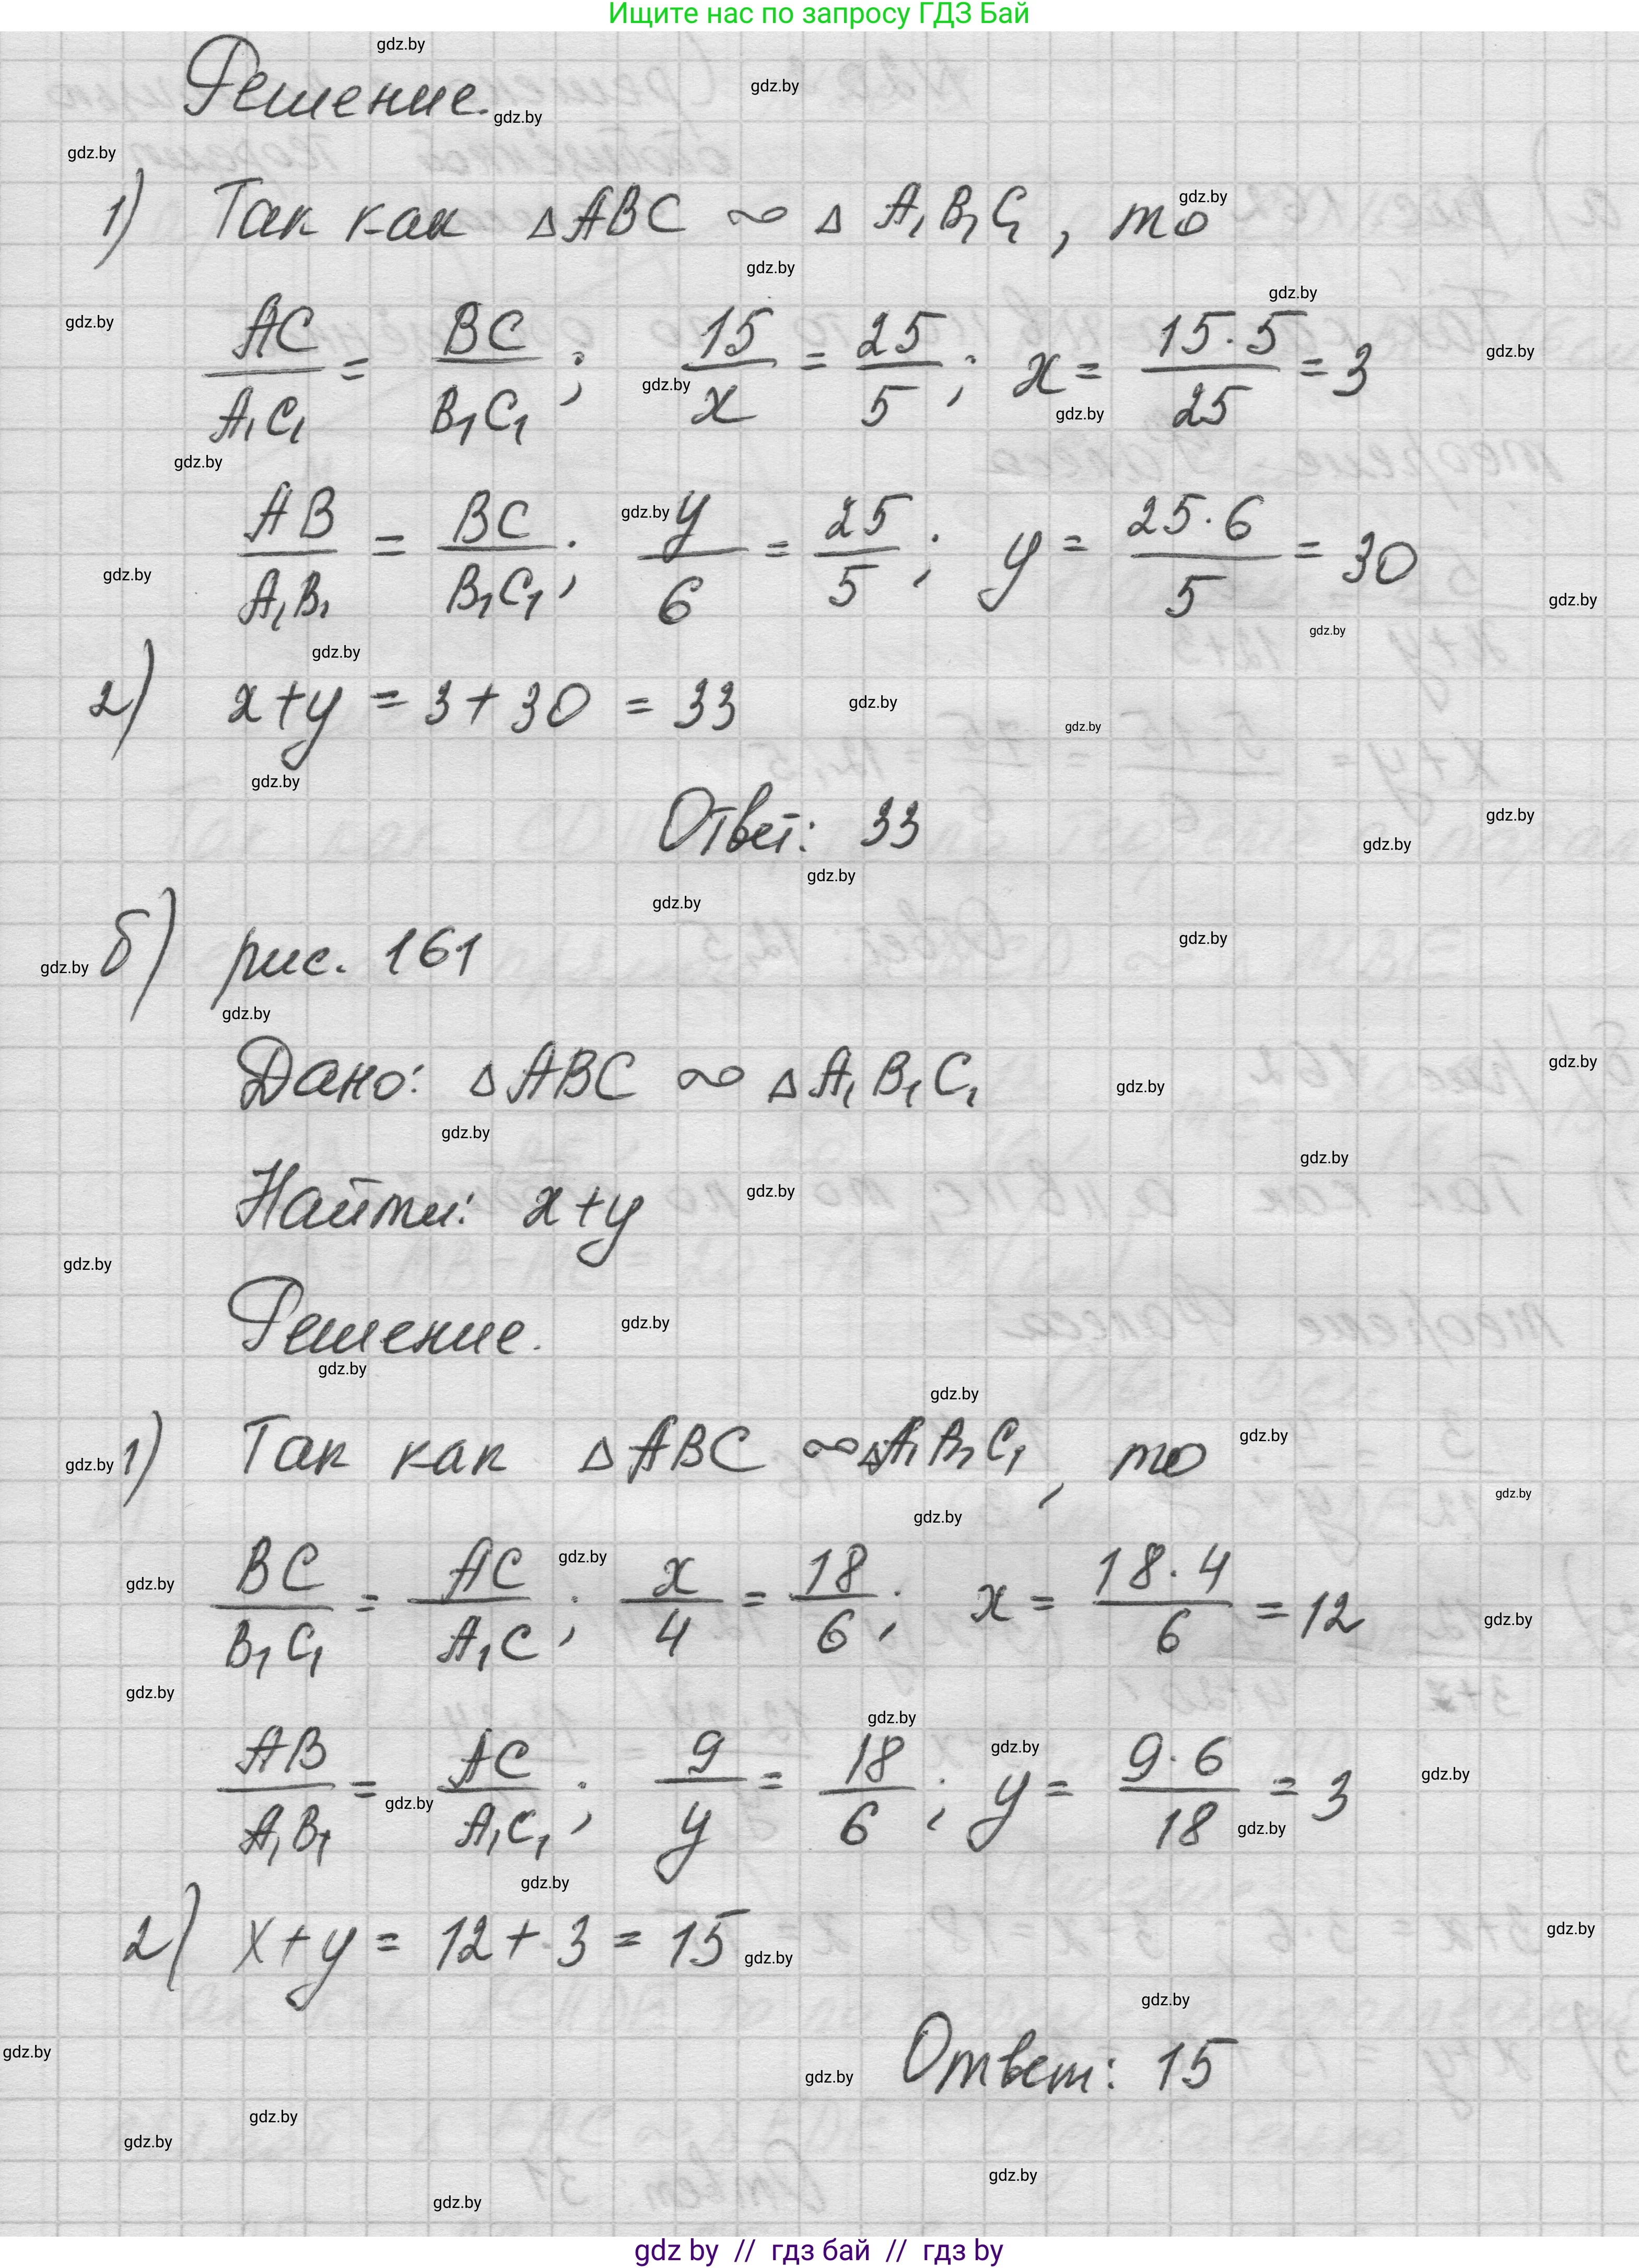 Ищите нас по запросу ГДЗ Бай
Решение.
1) Так как △ABC ∞ △A₁B₁C₁, то
AC/A₁C₁ = BC/B₁C₁; 15/x = 25/5; x = 15·5/25 = 3
AB/A₁B₁ = BC/B₁C₁; y/6 = 25/5; y = 25·6/5 = 30
2) x+y = 3+30 = 33
Ответ: 33
б) рис. 161
Дано: △ABC ∞ △A₁B₁C₁
Найти: x+y
Решение.
1) Так как △ABC ∞ △A₁B₁C₁, то
BC/B₁C₁ = AC/A₁C; x/4 = 18/6; x = 18·4/6 = 12
AB/A₁B₁ = AC/A₁C₁; 9/y = 18/6; y = 9·6/18 = 3
2) x+y = 12+3 = 15
Ответ: 15
gdz by // гдз бай // гдз by